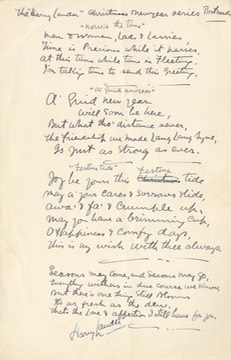 "The Harry Lauder" Christmas Newyear series Postcards
"now's the time"
Men & women, Lads & Lassies,
Time is Precious while it passes,
At this time while time is fleeting
I'm taking time to send this Greeting.
"A Guid newyear"
A' Guid New year
Will soon be here
But what tho' distance sever,
The friendship we made Lang Lang Syne,
Is Just as strong as ever.
"Festive tide"
Joy be yours this Festive tide
May a' your Cares & Sorrows slide,
awa' & fa' & Crumple up,
May you have a Brimming Cup,
O Happiness & Comfy days,
This is my wish with thee always.
Seasons may Come, and Seasons may go,
Everything withers in due course we know
But there's one thing still Blooms
As fresh as the dew,
That's the Love & affection I still have for you.
Harry Lauder